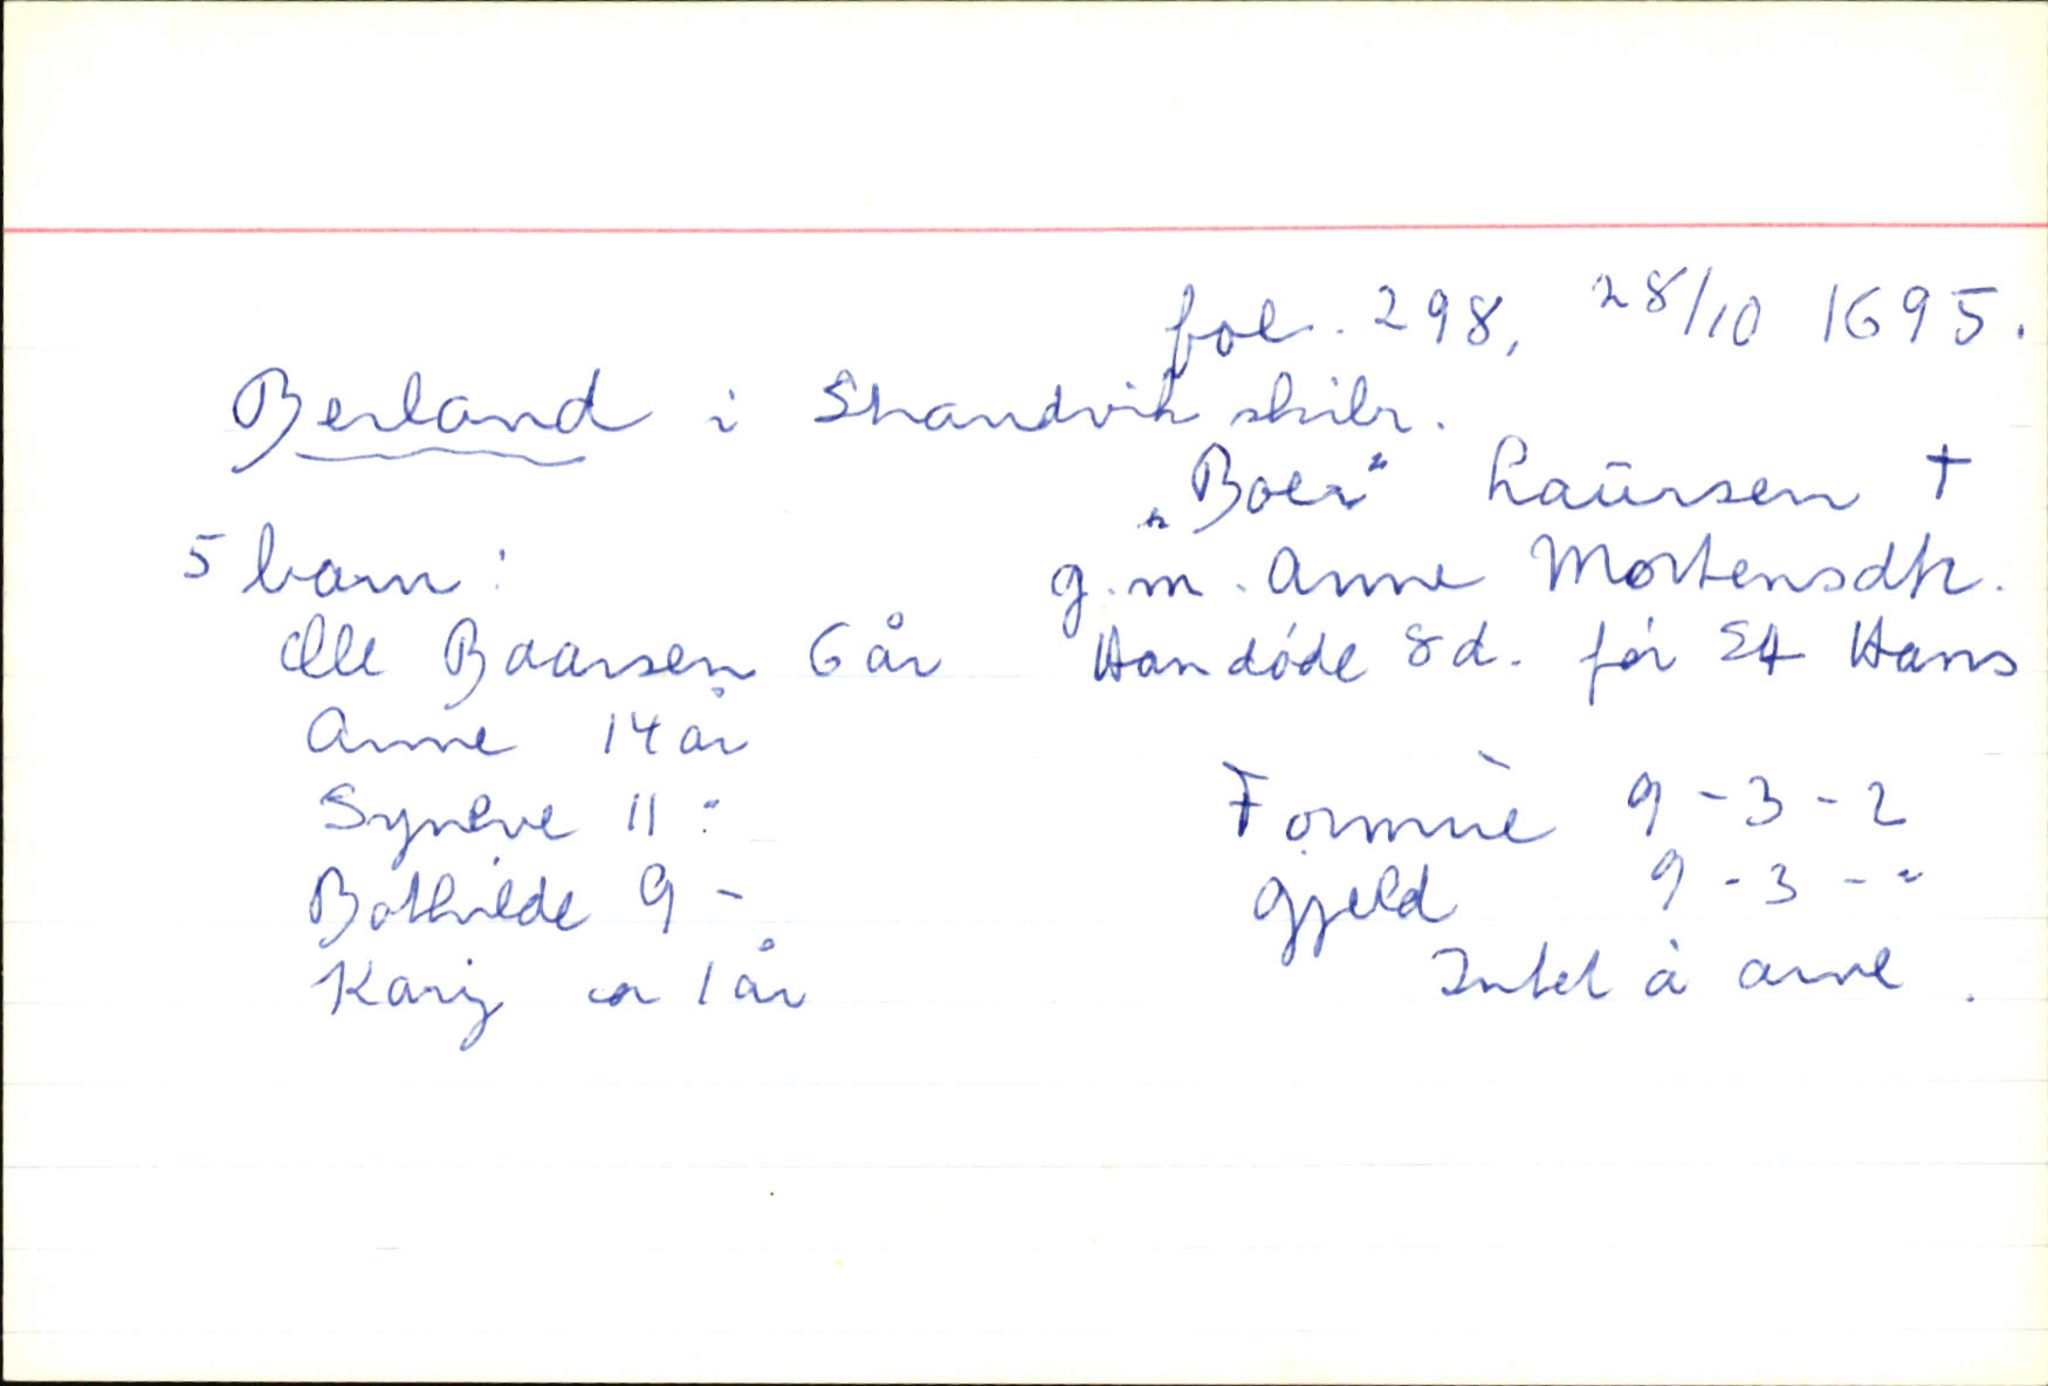 fol. 298, 28/10 1695.
Berland i Strandvik skibr.
„Boer" Laursen †
5 barn: g.m. Anne Mortensdtr.
Olle Baarsen 6 år Han døde 8 d. før St Hans
Anne 14 år
Syneve 11 " Formue 9-3-2
Bothilde 9 - gjeld 9-3-"
Karij ca 1 år Intet å arve.